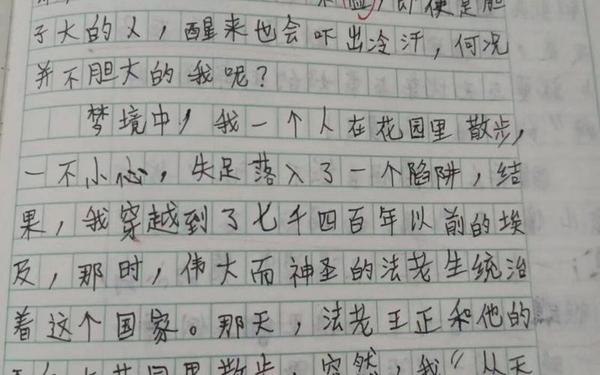 即使是胆
子大的人，醒来也会吓出冷汗，何况
并不胆大的我呢？
梦境中，我一个人在花园里散步，
一不小心，失足落入了一个陷阱，结
果，我穿越到了七千四百年以前的埃
及，那时，伟大而神圣的法老生统治
着这个国家。那天，法老王正和他的
花园里散步，突然，我“从天